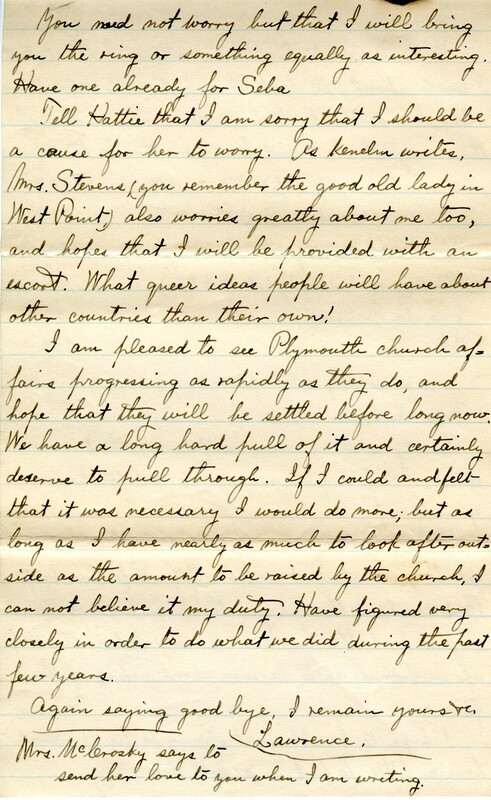 You need not worry but that I will bring
you the ring or something equally as interesting.
Have one already for Seba
Tell Hattie that I am sorry that I should be
a cause for her to worry. As Kenelm writes,
Mrs. Stevens, (you remember the good old lady in
West Point,) also worries greatly about me too,
and hopes that I will be provided with an
escort. What queer ideas people will have about
other countries than their own!
I am pleased to see Plymouth church af=
fairs progressing as rapidly as they do, and
hope that they will be settled before long now.
We have a long hard pull of it and certainly
deserve to pull through. If I could and felt
that it was necessary I would do more; but as
long as I have nearly as much to look after out=
side as the amount to be raised by the church, I
can not believe it my duty. Have figured very
closely in order to do what we did during the past
few years.
Again saying good bye, I remain yours &c.
Lawrence.
Mrs. McCrosky says to
send her love to you when I am writing.